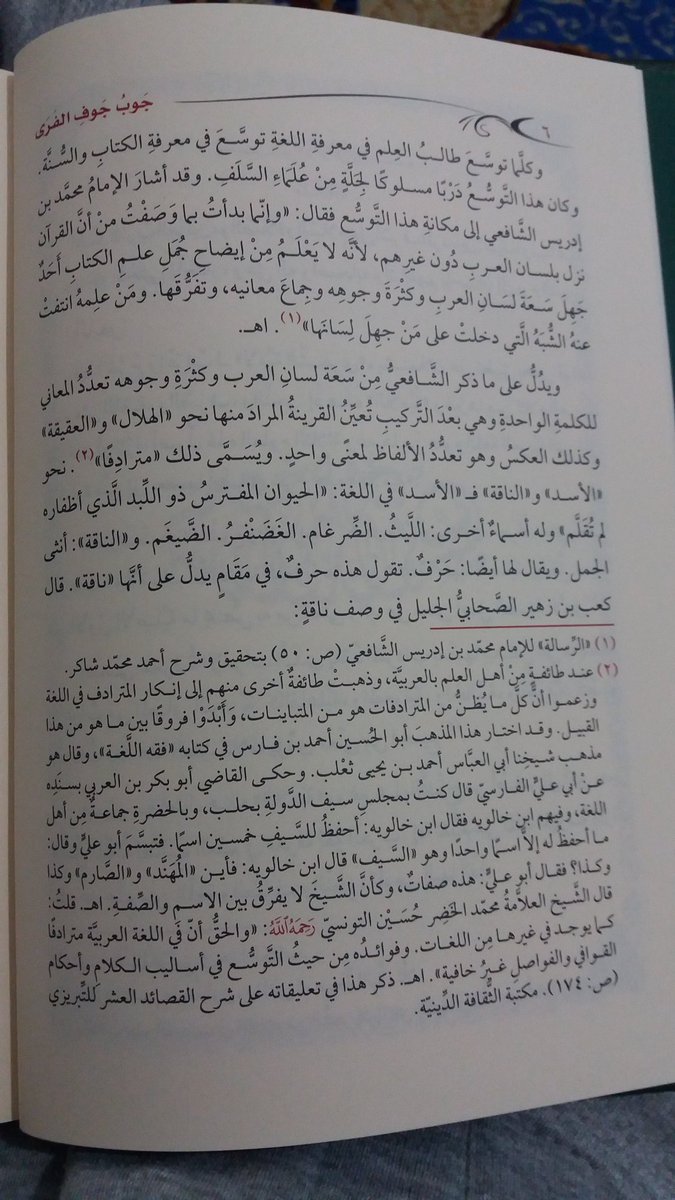 ٦
جَوبُ جَوفِ الفَرى
وكلَّما توسَّعَ طالبُ العِلم في معرفةِ اللغةِ توسَّعَ في معرفةِ الكتابِ والسُّنة.
وكان هذا التَّوسُّعُ دَرْبًا مسلوكًا لِجَلَّةٍ مِنْ عُلَماءِ السَّلَفِ. وقد أشارَ الإمامُ محمَّد بن
إدريس الشَّافعي إلى مكانةِ هذا التَّوسُّع فقال: «وإنَّما بدأتُ بما وَصَفْتُ منْ أنَّ القرآن
نزل بلسان العربِ دُون غيرِهم، لأنَّه لا يَعْلَمُ مِنْ إيضاحِ جُمَلِ علمِ الكتابِ أَحَدٌ
جَهِلَ سَعَةَ لسَانِ العربِ وكَثْرَةَ وجوهِه وجِماعَ معانيه، وتفَرُّقَها. ومَنْ علِمهُ انتفتْ
عنهُ الشُّبَهُ الَّتي دخلتْ على مَنْ جهِلَ لِسَانَها»(١). اهـ.
ويدُلُّ على ما ذكر الشَّافعيُّ مِنْ سَعَة لسانِ العرب وكثْرَةِ وجوهه تعدُّدُ المعاني
للكلمةِ الواحدةِ وهي بعْدَ التَّركيبِ تُعيِّنُ القرينةُ المرادَ منها نحو «الهلال» و«العقيقة»
وكذلك العكسُ وهو تعدُّدُ الألفاظ لمعنًى واحدٍ. ويُسَمَّى ذلك «مترادِفًا»(٢). نحو
«الأسد» و«الناقة» فـ«الأسد» في اللغة: «الحيوان المفترسُ ذو اللِّبد الَّذي أظفاره
لم تُقَلَّم» وله أسماءٌ أخرى: اللَّيثُ. الضِّرغام. الغَضَنْفرُ. الضَّيغَم. و«الناقة»: أنثى
الجمل. ويقال لها أيضًا: حَرْفٌ. تقول هذه حرفٌ، في مقَامٍ يدلُّ على أنَّها «ناقة». قال
كعب بن زهير الصَّحابيُّ الجليل في وصف ناقةٍ:
(١) «الرِّسالة» للإمام محمّد بن إدريس الشَّافعيّ (ص: ٥٠) بتحقيق وشرح أحمد محمَّد شاكر.
(٢) عند طائفةٍ مِنْ أهل العلم بالعربيَّة، وذهبتْ طائفةٌ أخرى منهم إلى إنكار المترادف في اللغة
وزعموا أنَّ كلَّ ما يُظنُّ من المترادفات هو من المتباينات، وَأَبْدَوْا فروقًا بين ما هو من هذا
القبيل. وقد اختار هذا المذهبَ أبو الحُسين أحمد بن فارس في كتابه «فقه اللَّغة»، وقال هو
مذهب شيخِنا أبي العبَّاس أحمد بن يحيى ثَعْلب. وحكى القاضي أبو بكر بن العربي بسنَدِه
عنْ أبي عليٍّ الفارسيّ قال كنتُ بمجلسِ سيف الدَّولةِ بحلب، وبالحضرةِ جماعةٌ مِن أهل
اللغة، وفيهم ابن خالويه فقال ابن خالويه: أحفظُ للسَّيفِ خمسين اسمًا. فتبسَّمَ أبو عليٍّ وقال:
ما أحفظُ له إلاَّ اسمًا واحدًا وهو «السَّيف» قال ابن خالويه: فأين «المُهنَّد» و«الصَّارم» وكذا
وكذا؟ فقال أبو عليٍّ: هذه صفاتٌ، وكأنَّ الشَّيخَ لا يفرِّقُ بين الاسمِ والصِّفةِ. اهـ. قلتُ:
قال الشَّيخ العلاَّمةُ محمّد الخَضِر حُسَيْن التونسيّ رَحِمَهُ ٱللَّهُ: «والحقُّ أنّ في اللغة العربيَّة مترادفًا
كما يوجد في غيرها مِن اللغات. وفوائدُه مِن حيثُ التَّوسُّع في أساليب الكلامِ وأحكام
القوافي والفواصلِ غيرُ خافية». اهـ. ذكر هذا في تعليقاته على شرح القصائد العشر للتِّبريزي
(ص: ١٧٤). مكتبَة الثَّقافة الدِّينيّة.